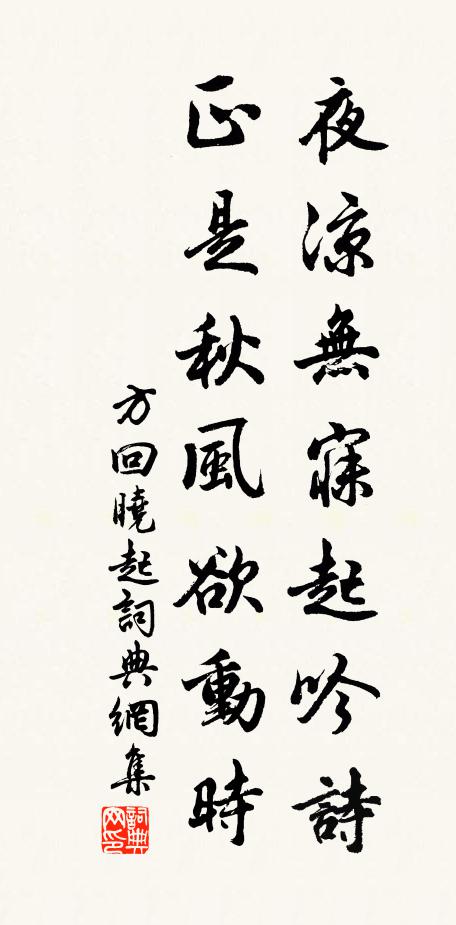 夜涼無寐起吟詩
正是秋風欲動時
方回曉起詞典網集
詞典网印